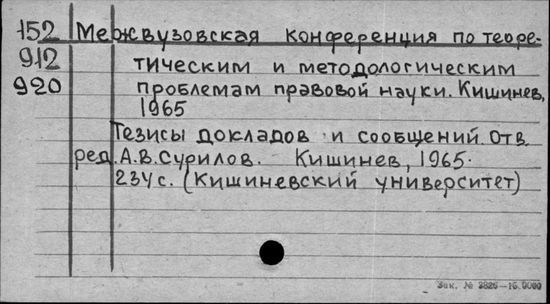 152 Межвузовская конференция по теоре-
912 тическим и методологическим
920 проблемам правовой науки. Кишинев,
1965
Тезисы докладов и сообщений. Отв.
ред. А.В. Сурилов. Кишинев, 1965.
234 с. (Кишиневский университет)
Зак. № 3826—15.0000